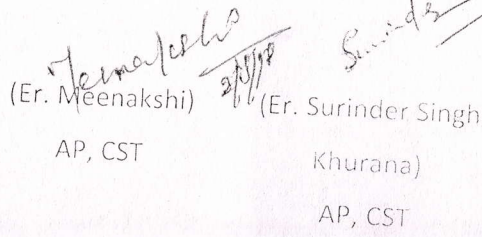 Meenakshi
Surinder
(Er. Meenakshi)
AP, CST
(Er. Surinder Singh
Khurana)
AP, CST